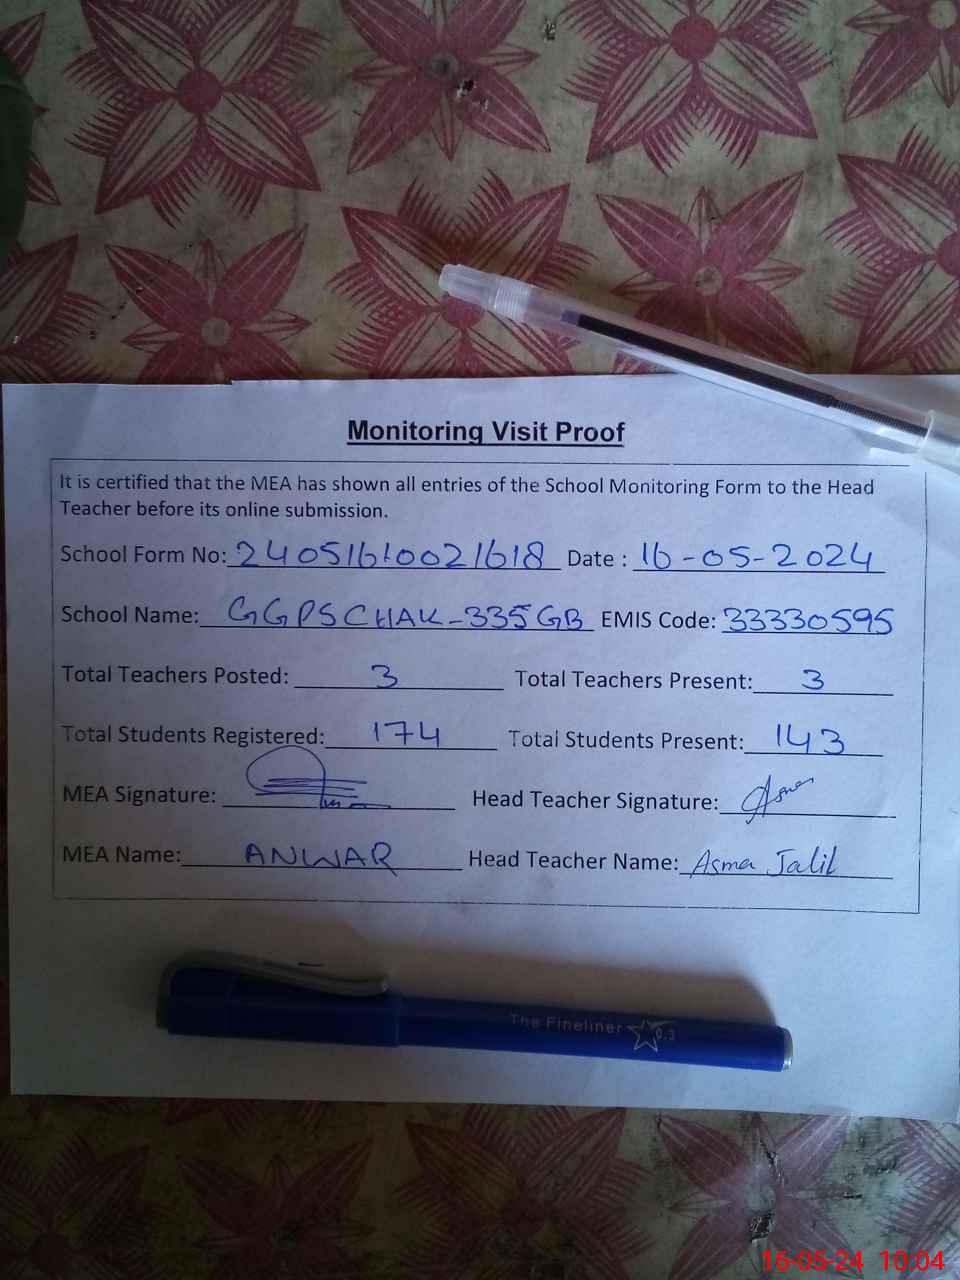 Monitoring Visit Proof
It is certified that the MEA has shown all entries of the School Monitoring Form to the Head
Teacher before its online submission.
School Form No: 24051610021618 Date : 16-05-2024
School Name: GGPS CHAK-335GB EMIS Code: 33330595
Total Teachers Posted: 3 Total Teachers Present: 3
Total Students Registered: 174 Total Students Present: 143
MEA Signature: Head Teacher Signature: Asma
MEA Name: ANWAR Head Teacher Name: Asma Jalil
The Fineliner 0.3
16-05-24 10:04